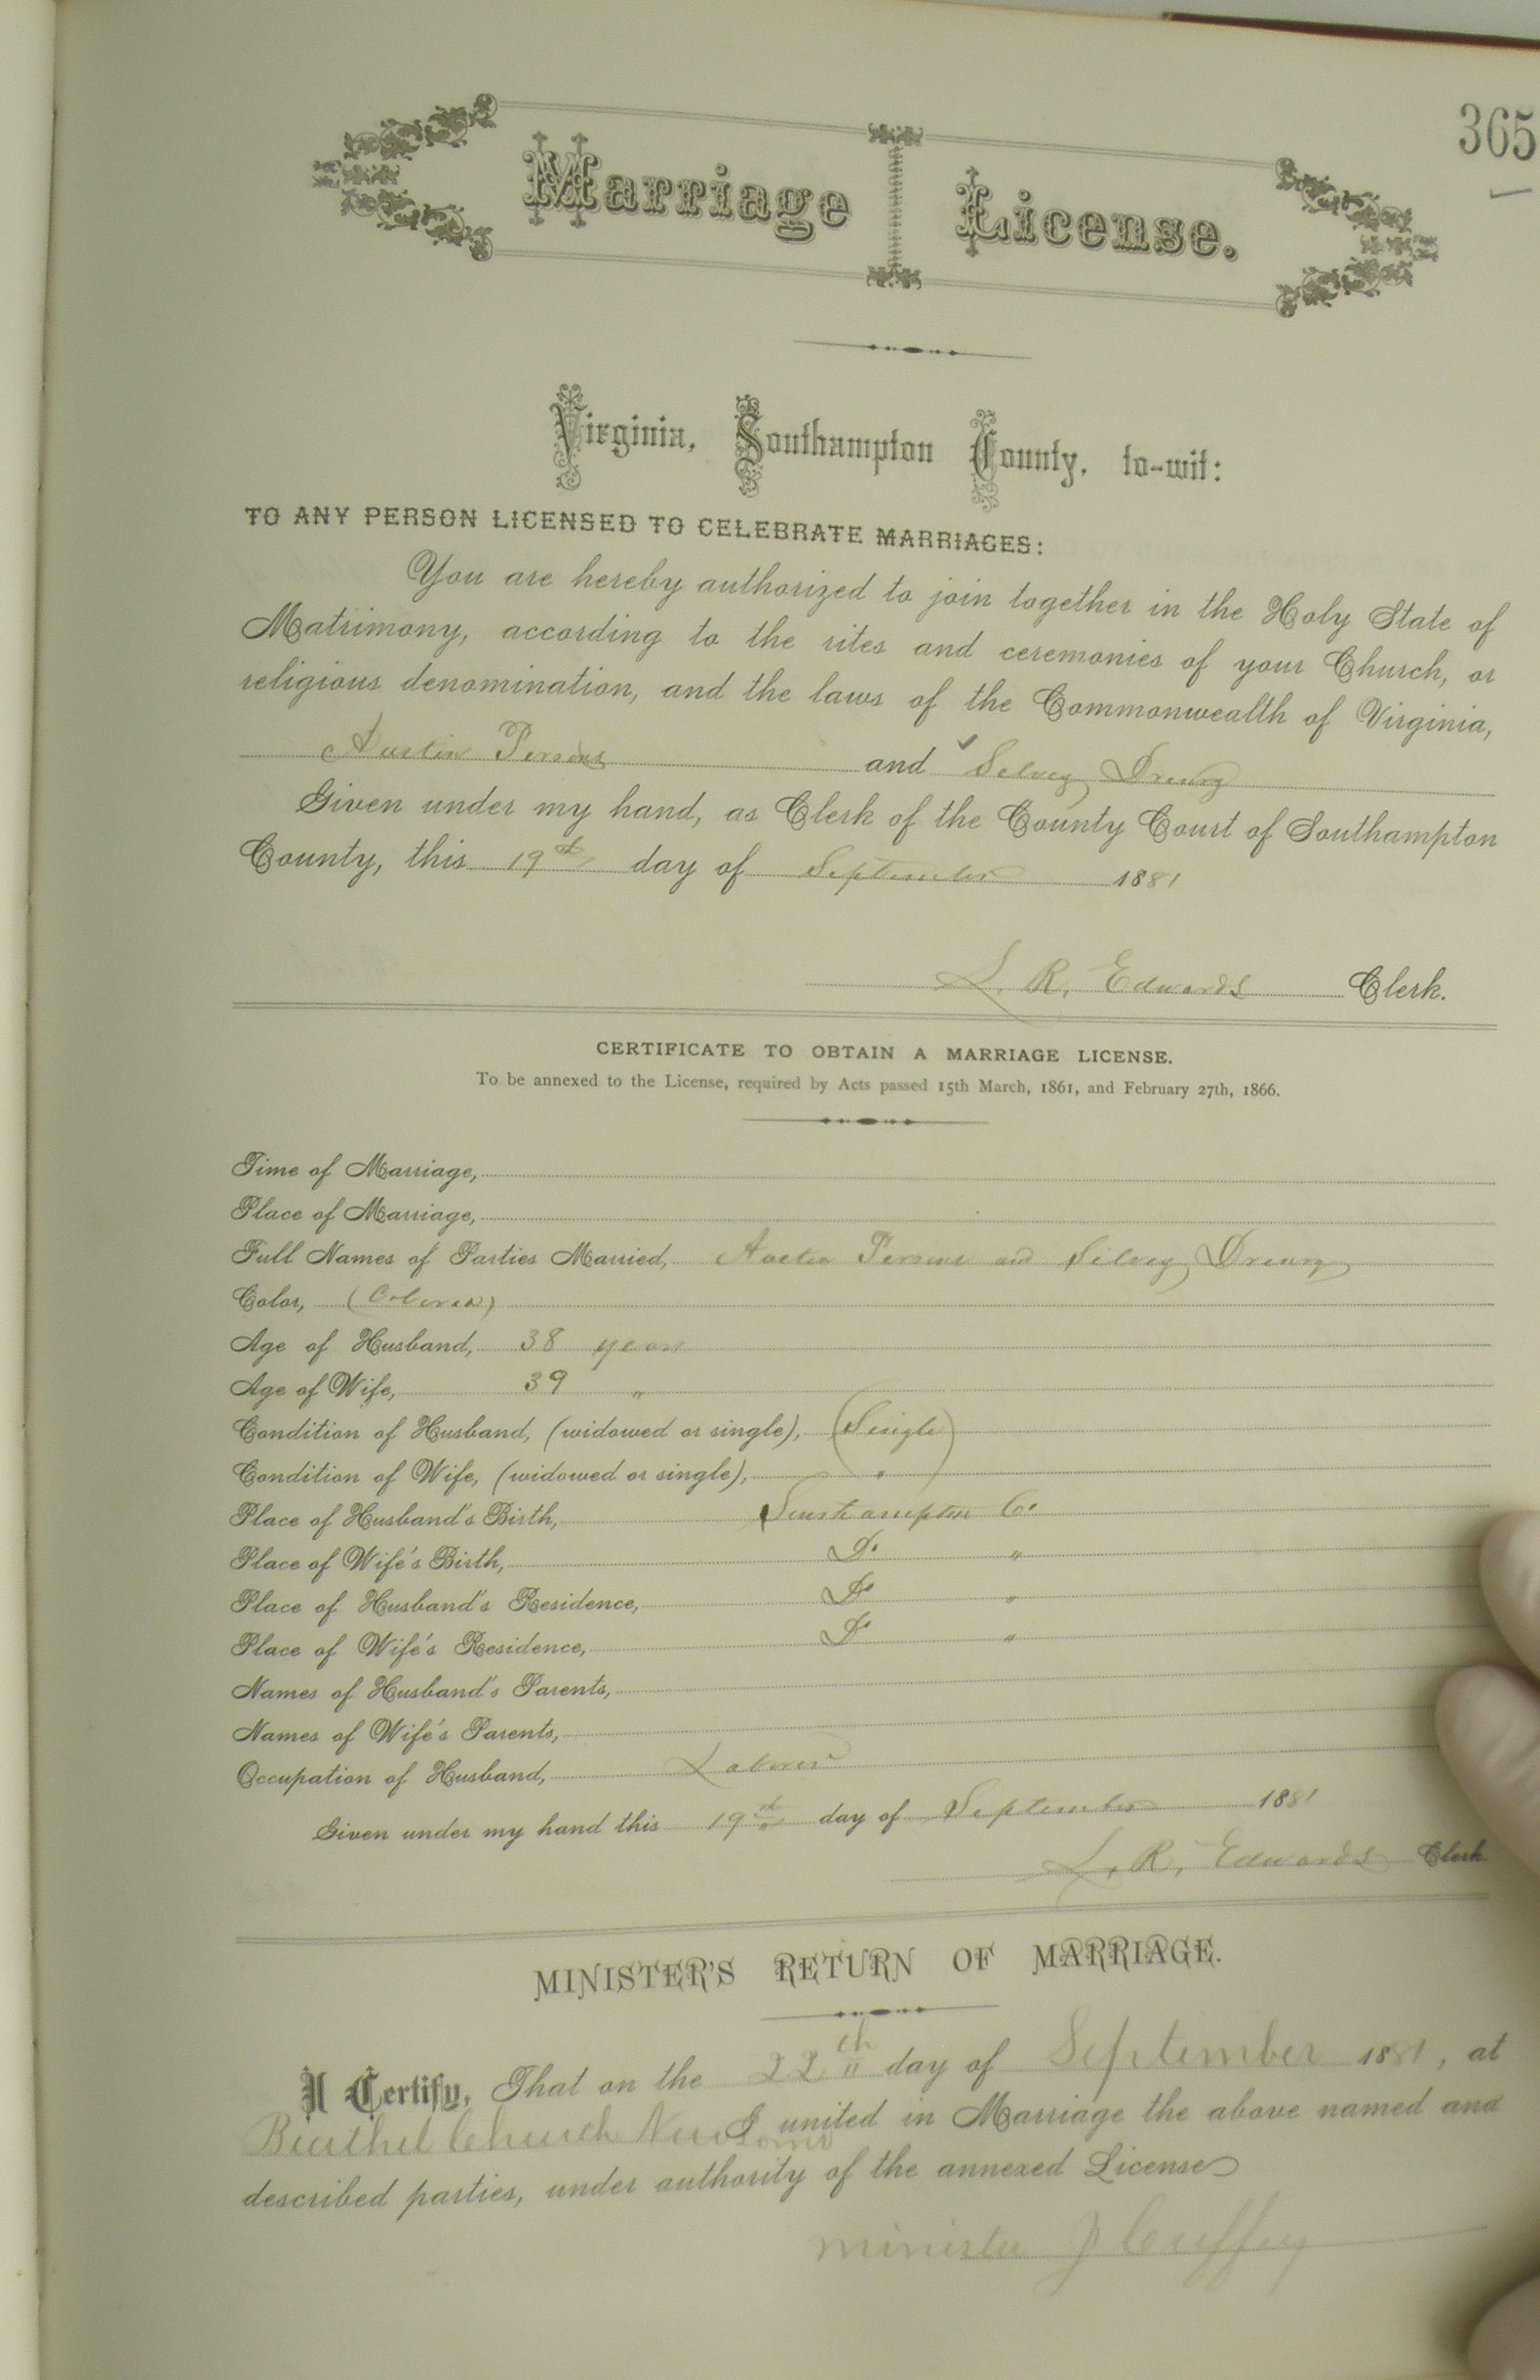 365
Marriage License.
Virginia, Southampton County, to-wit:
TO ANY PERSON LICENSED TO CELEBRATE MARRIAGES:
You are hereby authorized to join together in the Holy State of
Matrimony, according to the rites and ceremonies of your Church, or
religious denomination, and the laws of the Commonwealth of Virginia,
Austin Persons and Silvey Drewry
Given under my hand, as Clerk of the County Court of Southampton
County, this 19th day of September 1881
L. R. Edwards Clerk.
CERTIFICATE TO OBTAIN A MARRIAGE LICENSE.
To be annexed to the License, required by Acts passed 15th March, 1861, and February 27th, 1866.
Time of Marriage,
Place of Marriage,
Full Names of Parties Married, Austin Persons and Silvey Drewry
Color, (Colored)
Age of Husband, 38 years
Age of Wife, 39 "
Condition of Husband, (widowed or single), (Single)
Condition of Wife, (widowed or single), "
Place of Husband's Birth, Southampton Co.
Place of Wife's Birth, Do "
Place of Husband's Residence, Do "
Place of Wife's Residence, Do "
Names of Husband's Parents,
Names of Wife's Parents,
Occupation of Husband, Laborer
Given under my hand this 19th day of September 1881
L. R. Edwards Clerk
MINISTER'S RETURN OF MARRIAGE.
I Certify, That on the 22th day of September 1881, at
Church Newsoms I united in Marriage the above named and
described parties, under authority of the annexed License
minister J Cuffey